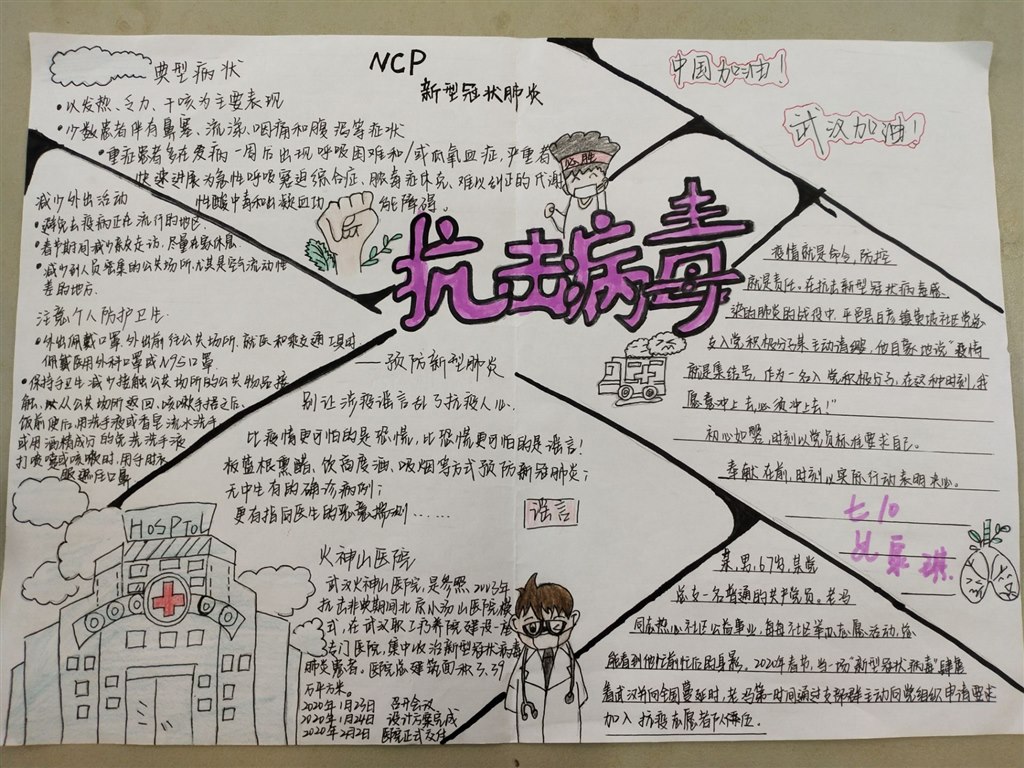 NCP
新型冠状肺炎
中国加油!
武汉加油!
典型病状
•以发热、乏力、干咳为主要表现
•少数患者伴有鼻塞、流涕、咽痛和腹泻等症状
•重症患者多在发病一周后出现呼吸困难和/或低氧血症,严重者
快速进展为急性呼吸窘迫综合症、脓毒症休克、难以纠正的代谢
性酸中毒和出凝血功能障碍。
必胜
抗击病毒
——预防新型肺炎
减少外出活动
•避免去疫病正在流行的地区.
•春节期间减少亲友走动,尽量在家休息.
•减少到人员密集的公共场所.尤其是空气流动性
差的地方.
注意个人防护卫生.
•外出佩戴口罩.外出前往公共场所、就医和乘交通工具时
佩戴医用外科口罩或N95口罩
•保持手卫生.减少接触公共场所的公共物品接
触.从公共场所返回、咳嗽手捂之后、
饭前便后,用洗手液或香皂流水洗手
或用酒精成分的免洗洗手液
打喷嚏或咳嗽时.用手肘衣
别让涉疫谣言乱了抗疫人心.
比疫情更可怕的是恐慌,比恐慌更可怕的是谣言!
板蓝根熏醋、饮高度酒、吸烟等方式预防新冠肺炎;
无中生有的确诊病例;
更有指向医生的恶意揣测......
谣言
HOSPTOL
火神山医院
武汉火神山医院,是参照2003年
抗击非典期间北京小汤山医院模
式,在武汉职工疗养院建设一座
专门医院,集中收治新型冠状病毒
肺炎患者.医院总建筑面积3.39
万平方米.
2020年1月23日 召开会议
2020年1月24日 设计方案完成
2020年2月2日 医院正式交付
疫情就是命令,防控
就是责任.在抗击新型冠状病毒感
染的肺炎的战役中,平邑县白彦镇黄坡社区党总
支入党积极分子某主动请缨,他自豪地说“疫情
就是集结号,作为一名入党积极分子,在这种时刻,我
愿意冲上去必须冲上去!”
初心如磐,时刻以党员标准要求自己.
奉献在前,时刻以实际行动表明决心.
七10
某,男,67岁,某党
总支一名普通的共产党员.老冯
同志热心社区公益事业,每每社区举办志愿活动,总
能看到他忙前忙后的身影.2020年春节,当一场“新型冠状病毒”肆虐
着武汉并向全国蔓延时,老冯第一时间通过支部群主动向党组织申请要求
加入抗疫志愿者队伍.